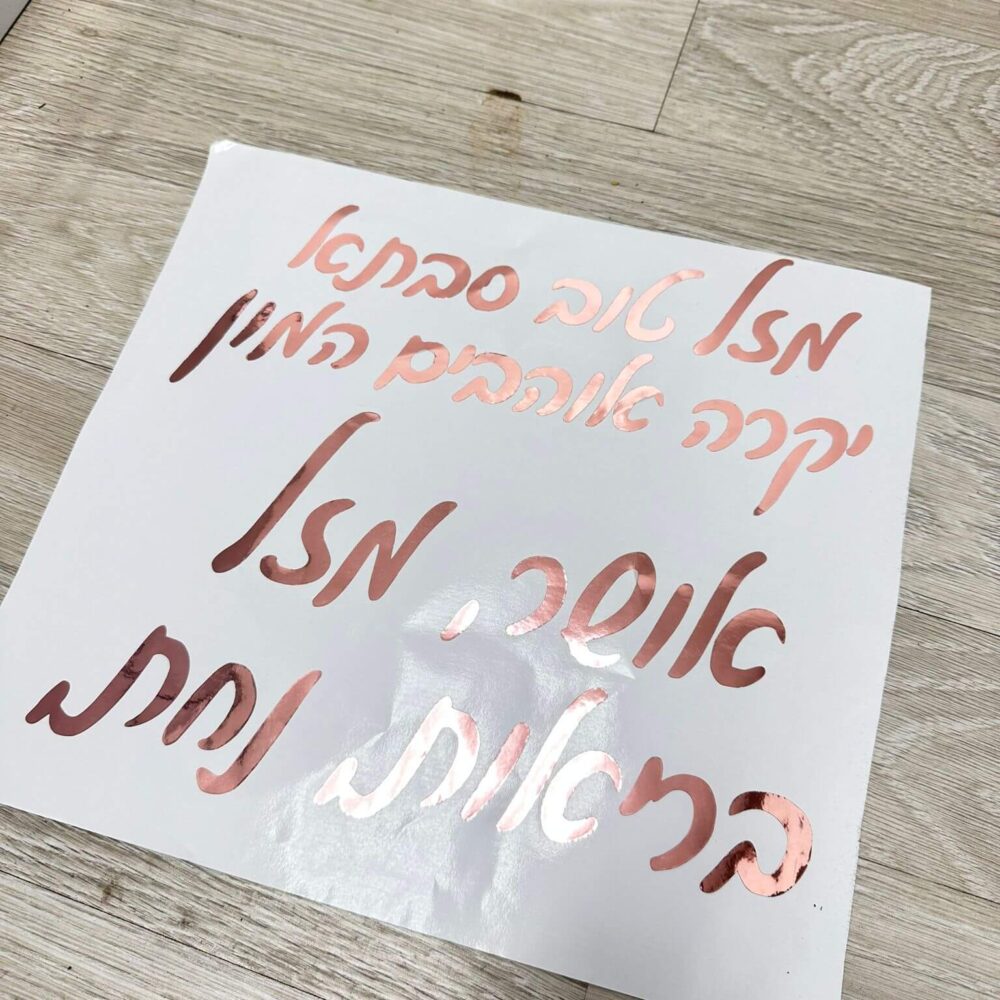 מזל טוב סבתא
יקרה אוהבים המון
אושר, מזל
בריאות נחת